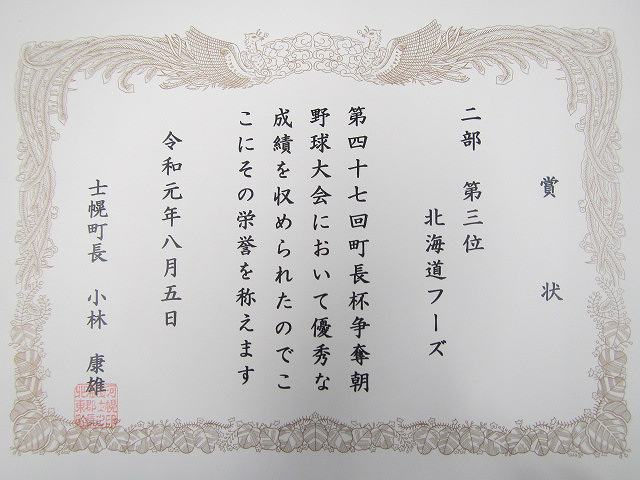 賞状
二部 第三位
北海道フーズ
第四十七回町長杯争奪朝
野球大会において優秀な
成績を収められたのでこ
こにその栄誉を称えます
令和元年八月五日
士幌町長 小林 康雄